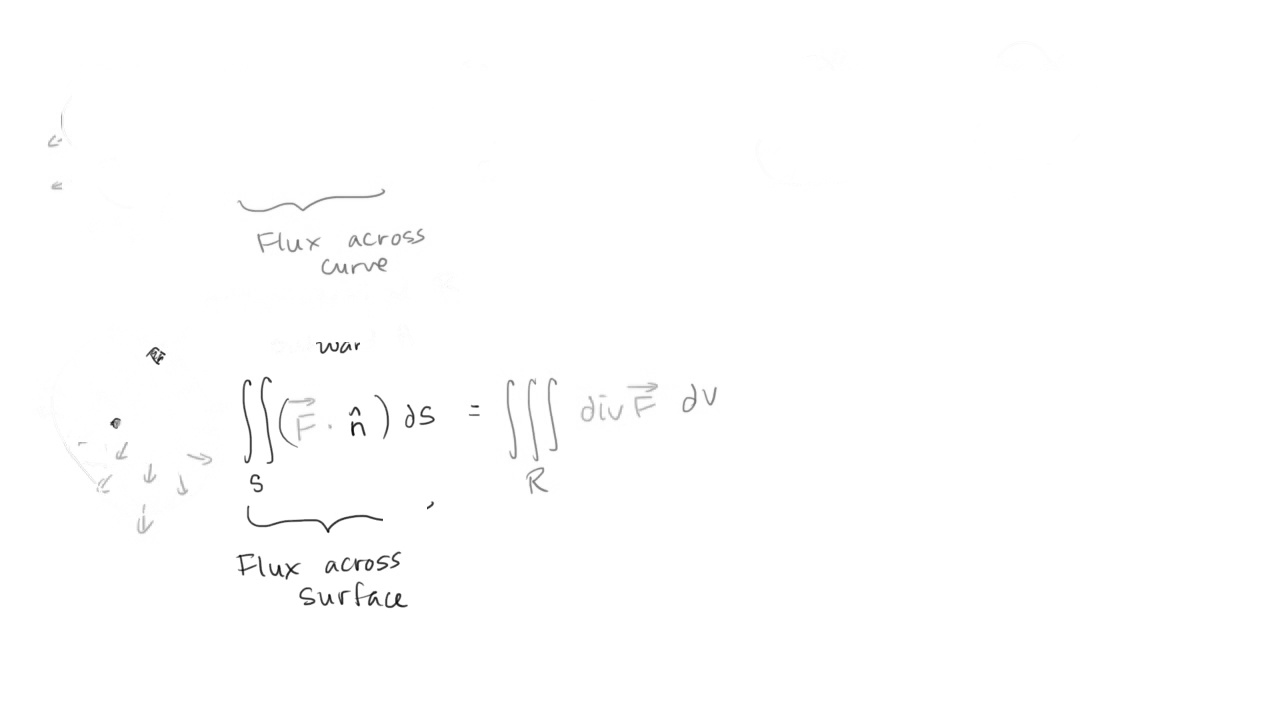 Flux across
curve
war
∬(F⃗ · n̂) dS = ∭ div F⃗ dV
S R
Flux across
surface